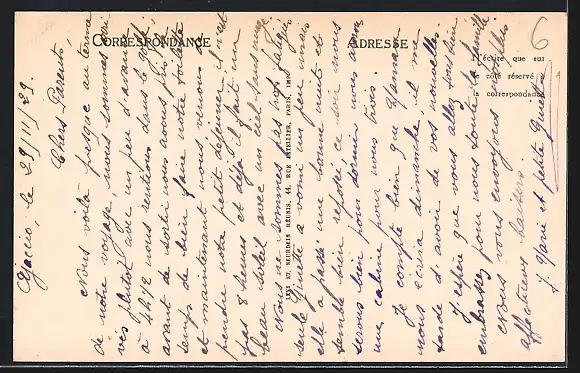 CORRESPONDANCE
ADRESSE
N'écrire que sur
le côté réservé à
la correspondance
6
LÉVY ET NEURDEIN RÉUNIS, 44, RUE LETELLIER, PARIS, IMP.
Ajaccio le 29/11/29.
Chers Parents
Nous voilà presque au terme
de notre voyage nous sommes arri
vés plutôt avec un peu d'avance
à 4h12 nous rentrions dans le golfe
avant de sortir nous avons pris
temps de bien faire notre toilette
et maintenant nous venons de
prendre notre petit déjeuner il n'est
pas 8 heures et déjà il fait un
beau soleil avec un ciel sans nuage
Nous ne sommes pas trop fatigués
seule Ginette a vomi un peu mais
elle a passé une bonne nuit et
semble bien reposée ce soir nous
serons bien pour dormir nous avons
une cabine pour nous trois.
Je compte bien que
nous écrira dimanche, il me
tarde d'avoir de vos nouvelles.
J'espère que vous allez tous bien
embrassez pour nous toute la famille
Nous vous envoyons nos plus
affectueux baisers
J. Marie et petite Ginette